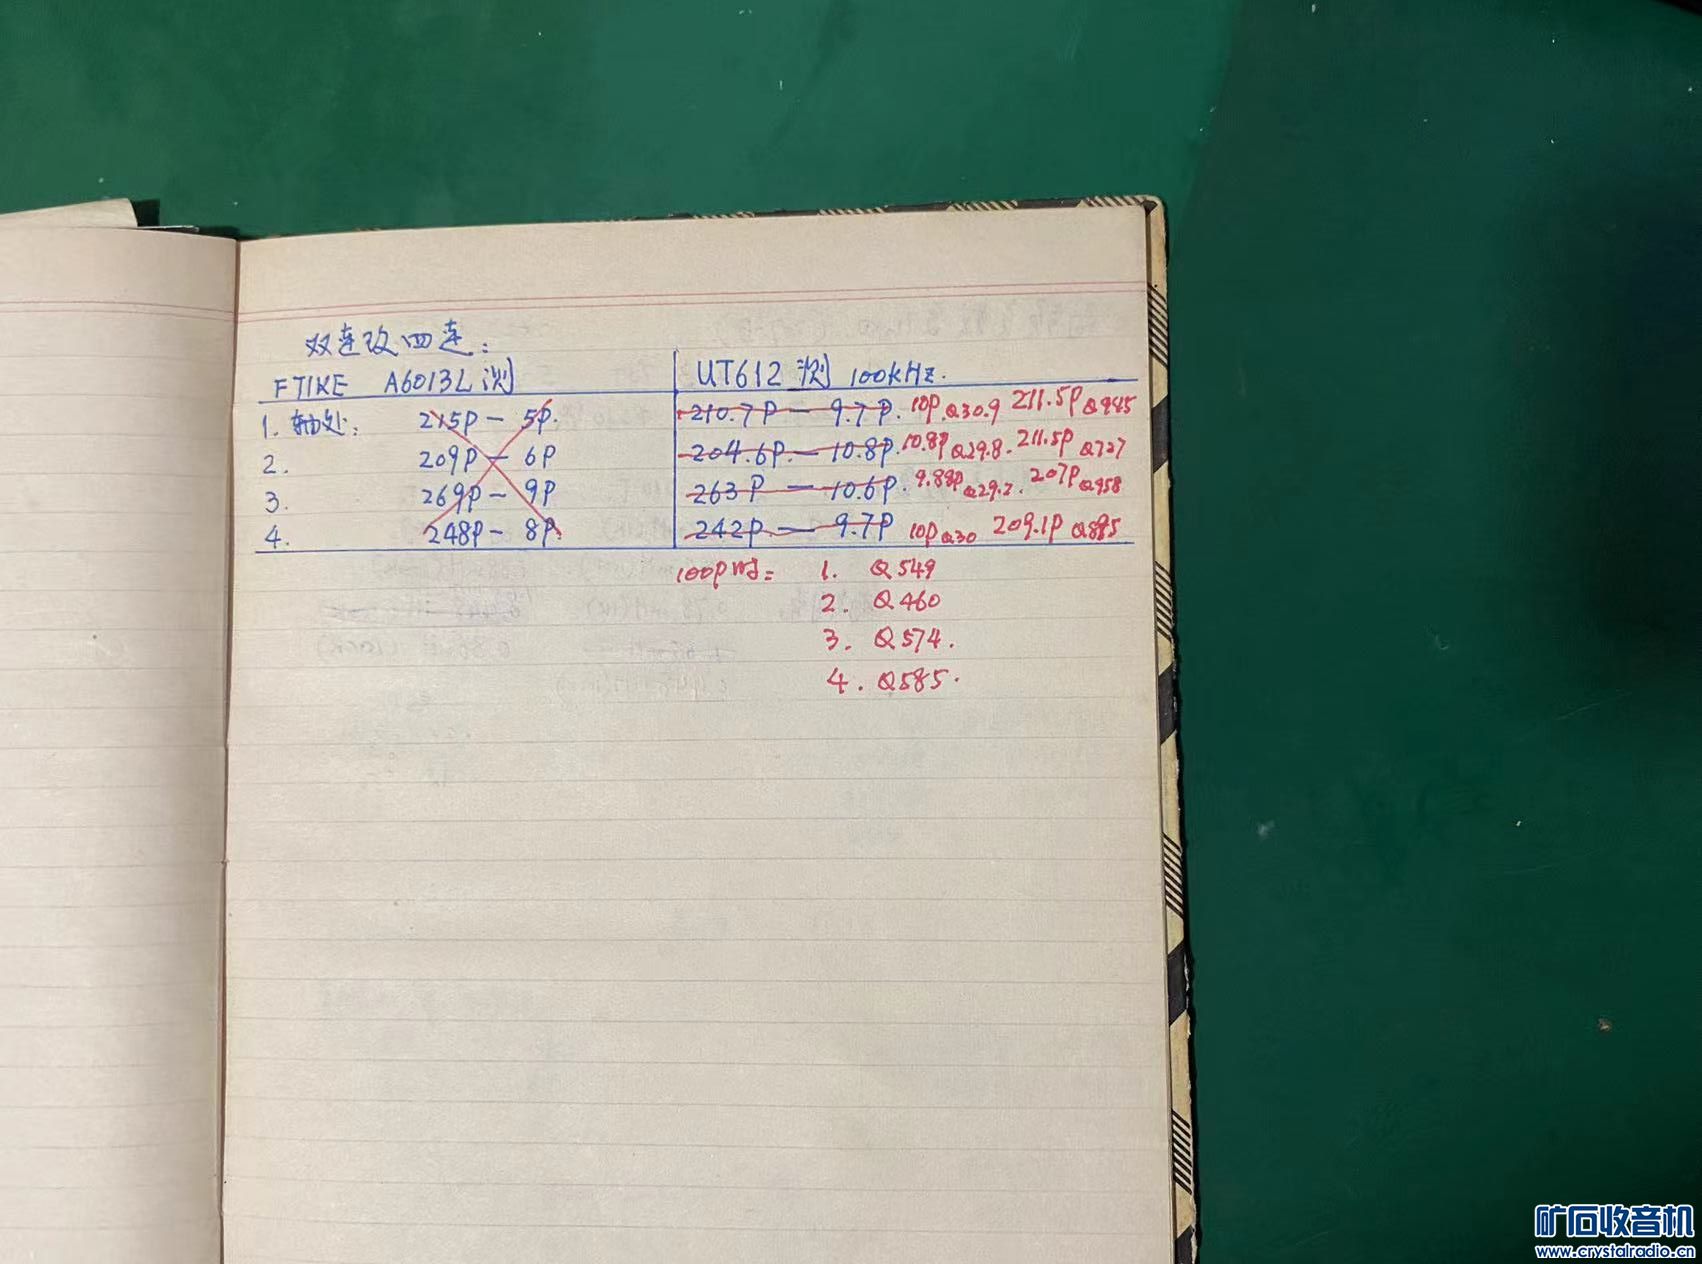 双连改四连：
FTIKE A6013L测 UT612 测 100kHz.
1. 轴处: 215P — 5P. 210.7P — 9.7P. 10P. Q30.9 211.5P Q945
2. 209P — 6P 204.6P — 10.8P. 10.8P Q29.8. 211.5P Q727
3. 269P — 9P 263P — 10.6P. 9.88P Q29.2. 207P Q958
4. 248P — 8P. 242P — 9.7P 10P Q30 209.1P Q885
100P时: 1. Q549
2. Q460
3. Q574.
4. Q585.
矿石收音机
www.crystalradio.cn